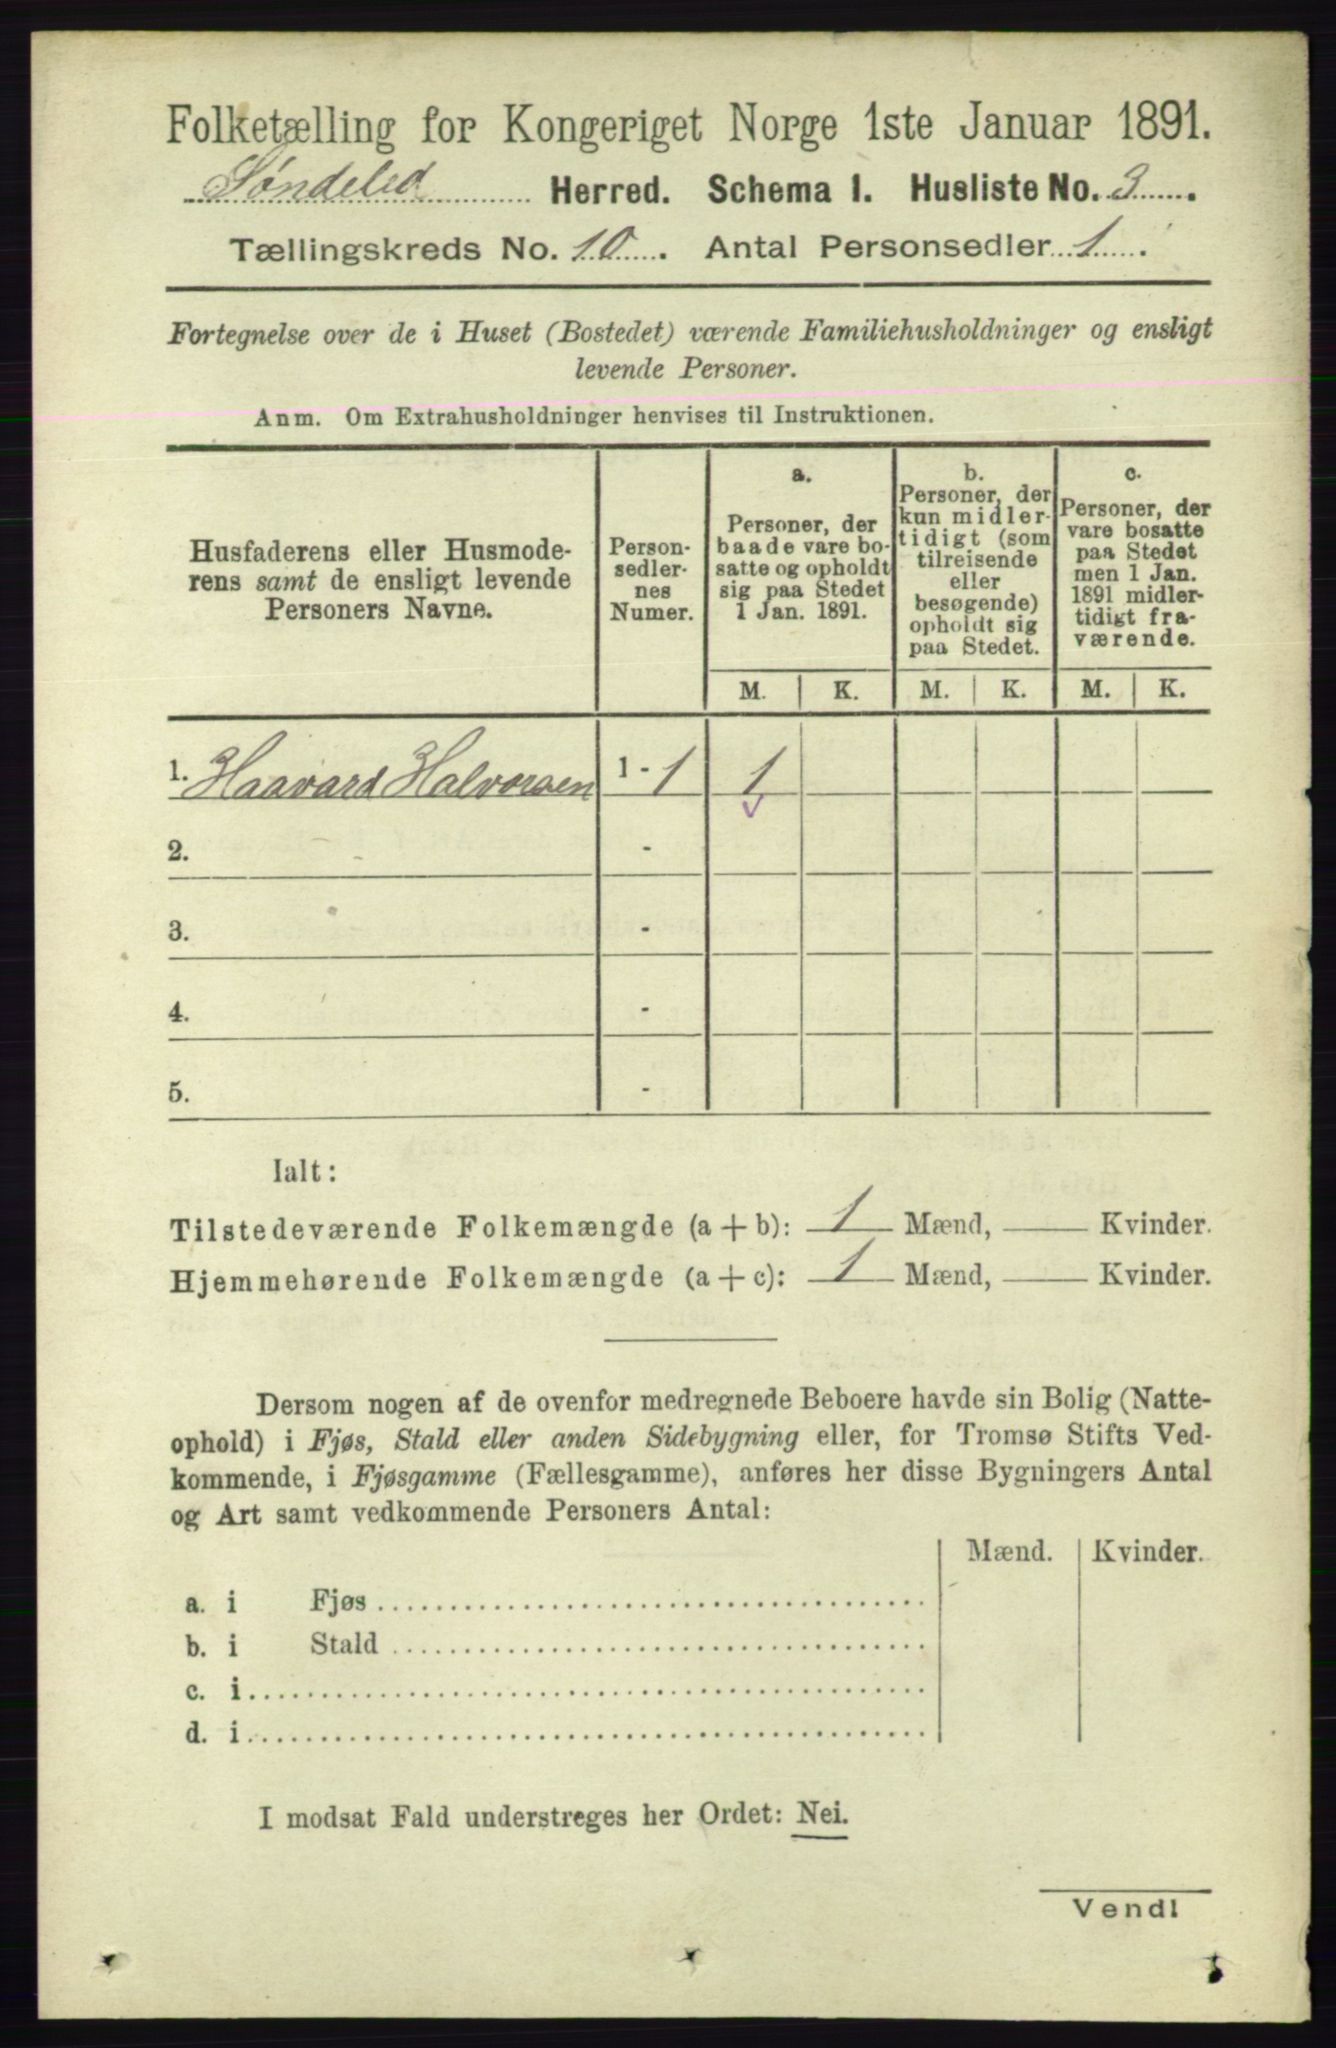 Folketælling for Kongeriget Norge 1ste Januar 1891.
Søndeled Herred. Schema 1. Husliste No. 3
Tællingskreds No. 10. Antal Personsedler 1.
Fortegnelse over de i Huset (Bostedet) værende Familiehusholdninger og ensligt
levende Personer.
Anm. Om Extrahusholdninger henvises til Instruktionen.
Husfaderens eller Husmode-
rens samt de ensligt levende
Personers Navne.
Person-
sedler-
nes
Numer.
a.
Personer, der
baade vare bo-
satte og opholdt
sig paa Stedet
1 Jan. 1891.
b.
Personer, der
kun midler-
tidigt (som
tilreisende
eller
besøgende)
opholdt sig
paa Stedet.
c.
Personer, der
vare bosatte
paa Stedet
men 1 Jan.
1891 midler-
tidigt fra-
værende.
M. K. M. K. M. K.
1. Haavard Halvorsen 1 - 1 1
2. -
3. -
4. -
5. -
Ialt:
Tilstedeværende Folkemængde (a + b): 1 Mænd, —— Kvinder.
Hjemmehørende Folkemængde (a + c): 1 Mænd, —— Kvinder.
Dersom nogen af de ovenfor medregnede Beboere havde sin Bolig (Natte-
ophold) i Fjøs, Stald eller anden Sidebygning eller, for Tromsø Stifts Ved-
kommende, i Fjøsgamme (Fællesgamme), anføres her disse Bygningers Antal
og Art samt vedkommende Personers Antal:
Mænd. Kvinder.
a. i Fjøs
b. i Stald
c. i
d. i
I modsat Fald understreges her Ordet: Nei.
Vend!